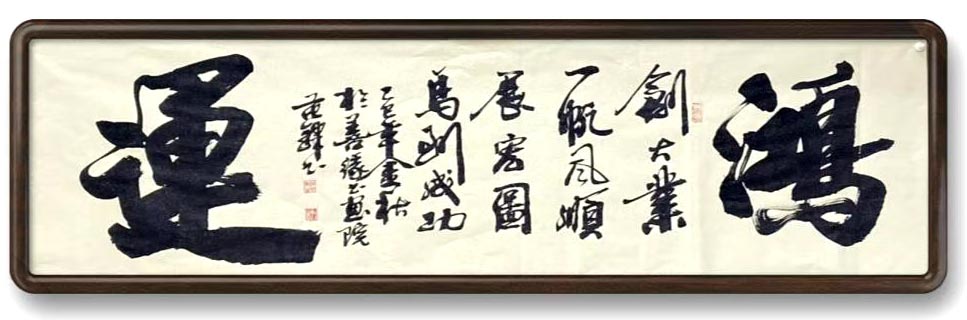 鴻
創大業
一帆風順
展宏圖
馬到成功
乙巳年金秋
於善緣书畫院
運